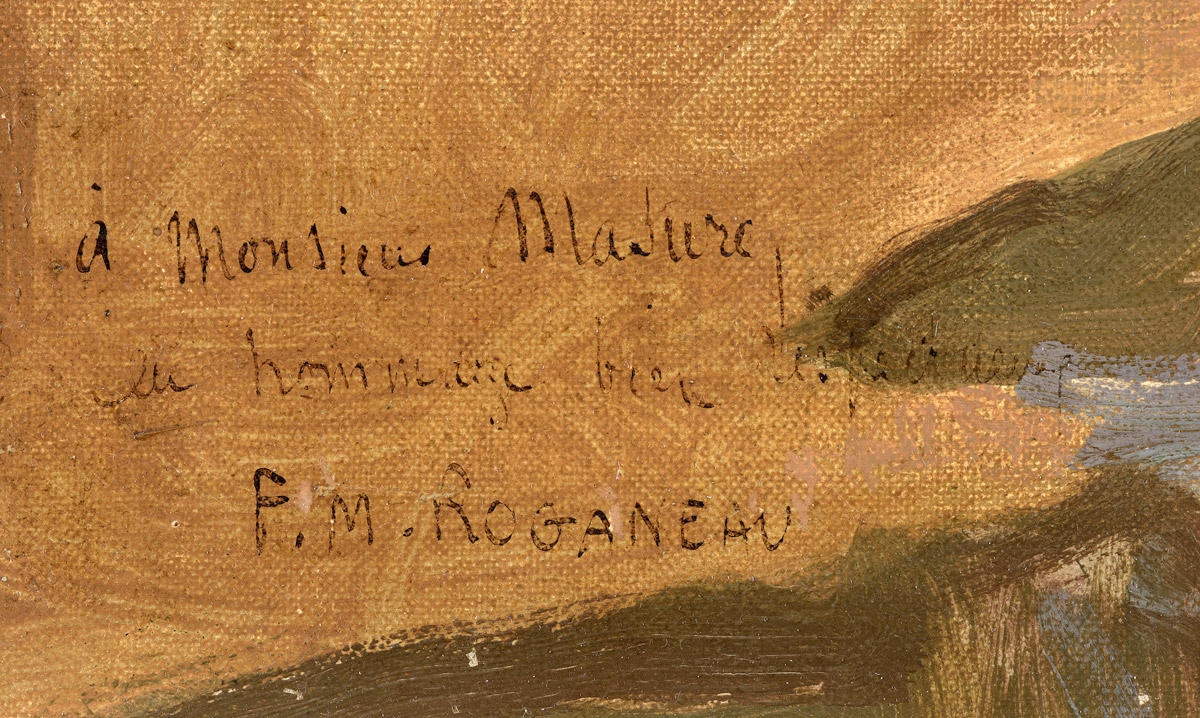 à Monsieur Madure,
en hommage bien respectueux
F. M. ROGANEAU